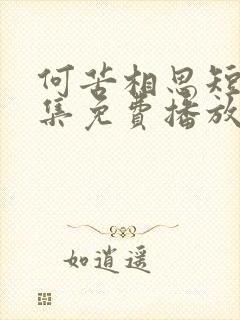 何苦相思短
集免费播放
如逍遥